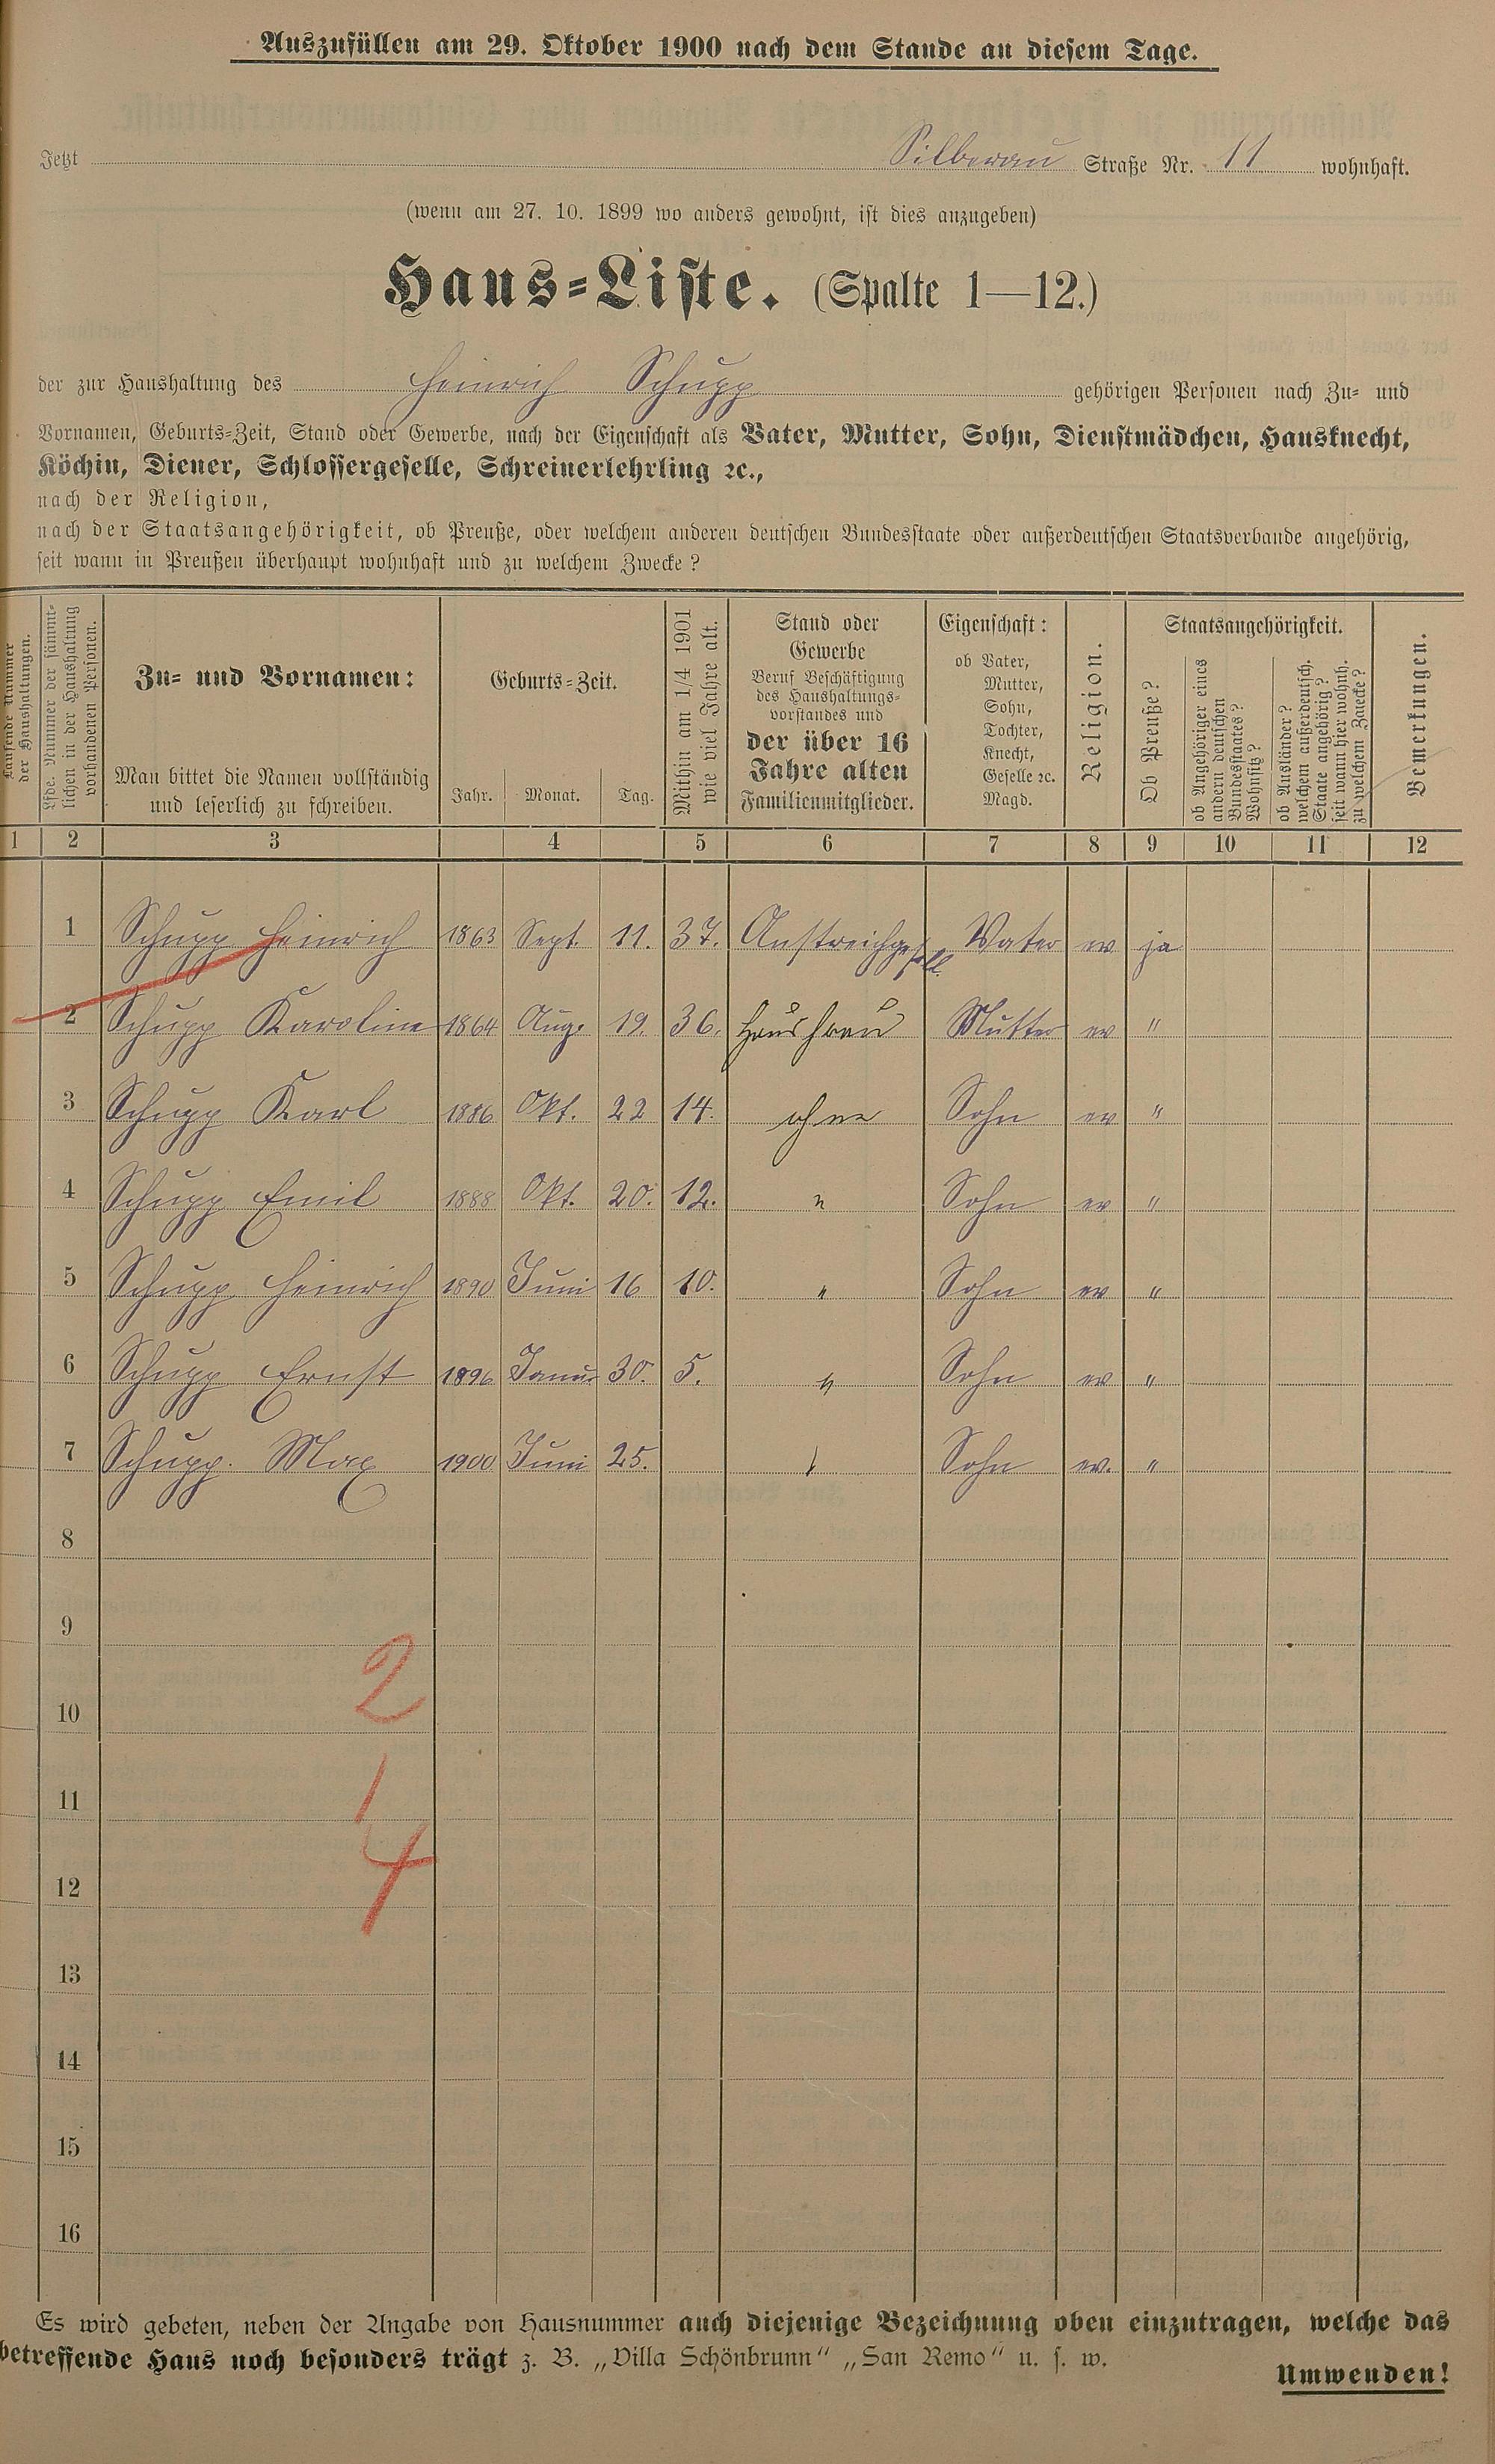 Auszufüllen am 29. Oktober 1900 nach dem Stande an diesem Tage.
Jetzt Silberau Straße Nr. 11 wohnhaft.
(wenn am 27. 10. 1899 wo anders gewohnt, ist dies anzugeben)
Haus-Liste. (Spalte 1—12.)
der zur Haushaltung des Heinrich Schupp gehörigen Personen nach Zu- und
Vornamen, Geburts-Zeit, Stand oder Gewerbe, nach der Eigenschaft als Vater, Mutter, Sohn, Dienstmädchen, Hausknecht,
Köchin, Diener, Schlossergeselle, Schreinerlehrling ꝛc.,
nach der Religion,
nach der Staatsangehörigkeit, ob Preuße, oder welchem anderen deutschen Bundesstaate oder außerdeutschen Staatsverbande angehörig,
seit wann in Preußen überhaupt wohnhaft und zu welchem Zwecke?
Laufende Nummer
der Haushaltungen.
Lfde. Nummer der sämmt-
lichen in der Haushaltung
vorhandenen Personen.
Zu- und Vornamen:
Man bittet die Namen vollständig
und leserlich zu schreiben.
Geburts-Zeit.
Jahr. Monat. Tag.
Mithin am 1/4 1901
wie viel Jahre alt.
Stand oder
Gewerbe
Beruf Beschäftigung
des Haushaltungs-
vorstandes und
der über 16
Jahre alten
Familienmitglieder.
Eigenschaft:
ob Vater,
Mutter,
Sohn,
Tochter,
Knecht,
Geselle ꝛc.
Magd.
Religion.
Staatsangehörigkeit.
Ob Preuße?
ob Angehöriger eines
andern deutschen
Bundesstaates?
Wohnsitz?
ob Ausländer?
welchem außerdeutsch.
Staate angehörig?
seit wann hier wohnh.
zu welchem Zwecke?
Bemerkungen.
1 2 3 4 5 6 7 8 9 10 11 12
1 Schupp Heinrich 1863 Sept. 11. 37. Anstreichgesell. Vater ev ja
2 Schupp Karoline 1864 Aug. 19. 36. Hausfrau Mutter ev "
3 Schupp Karl 1886 Okt. 22 14. ohne Sohn ev "
4 Schupp Emil 1888 Okt. 20. 12. " Sohn ev "
5 Schupp Heinrich 1890 Juni 16 10. " Sohn ev "
6 Schupp Ernst 1896 Januar 30. 5. " Sohn ev "
7 Schupp. Max 1900 Juni 25. " Sohn ev. "
8
9
2
10
11 1
12 4
13
14
15
16
Es wird gebeten, neben der Angabe von Hausnummer auch diejenige Bezeichnung oben einzutragen, welche das
betreffende Haus noch besonders trägt z. B. „Villa Schönbrunn" „San Remo" u. s. w.
Umwenden!